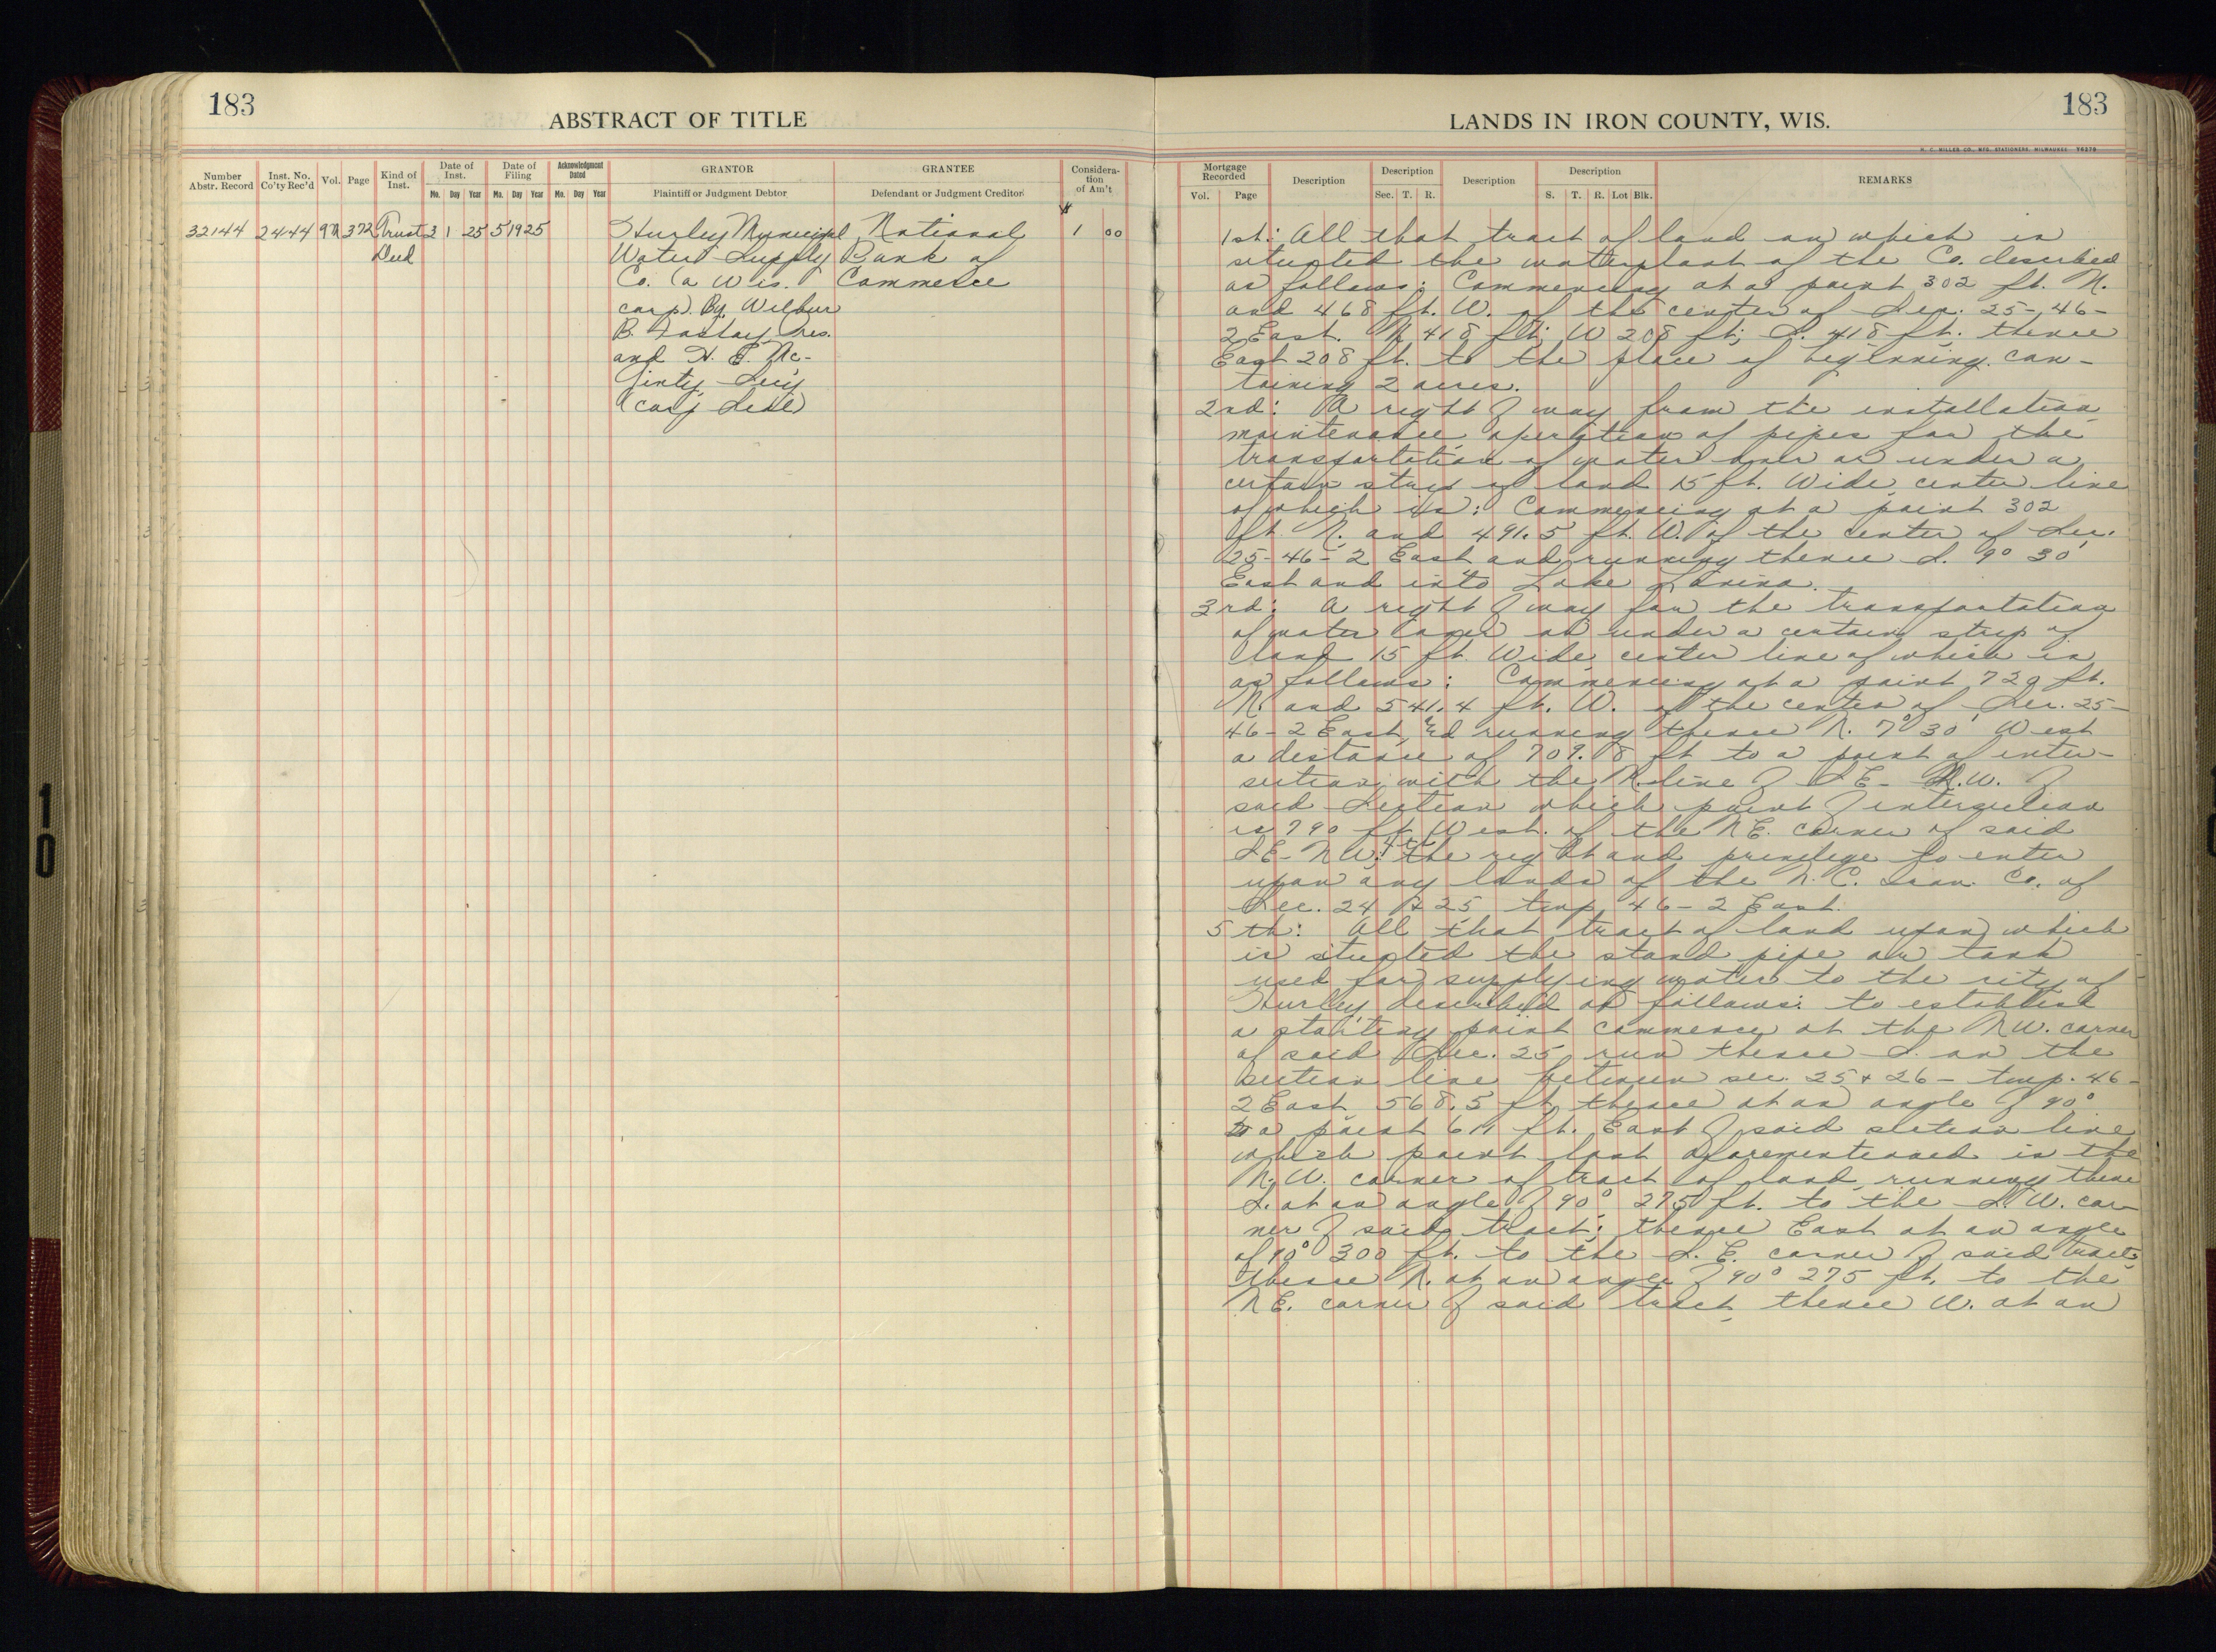 183
ABSTRACT OF TITLE
Number Abstr. Record
Inst. No. Co'ty Rec'd
Vol.
Page
Kind of Inst.
Date of Inst.
Mo. Day Year
Date of Filing
Mo. Day Year
Acknowledgment Dated
Mo. Day Year
GRANTOR
Plaintiff or Judgment Debtor
GRANTEE
Defendant or Judgment Creditor
Considera-
tion
of Am't
32144 24144 372 Trust 1 25 5 19 25 Hurley Municipal National $ 1 00
Deed Water Supply Bank of
Co. (a Wis. Commerce
corp). By Wilbur
B. Foshay, Pres.
and H. E. Mc-
Ginty Sec'y
(corp Seal)
LANDS IN IRON COUNTY, WIS.
183
H. C. MILLER CO., MFG. STATIONERS, MILWAUKEE
Mortgage Recorded
Vol. Page
Description
Description
Sec. T. R.
Description
Description
S. T. R. Lot Blk.
REMARKS
1st: All that tract of land on which is
situated the waterplant of the Co. described
as follows: Commencing at a point 302 ft. N.
and 468 ft. W. of the center of Sec. 25-46-
2 East. N 418 ft; W 208 ft; S. 418 ft. thence
East 208 ft. to the place of beginning. con-
taining 2 acres.
2nd: A right of way from the installation
maintenance operation of pipes for the
transportation of water over or under a
certain strip of land 15 ft. Wide center line
of which is: Commencing at a point 302
ft. N. and 491.5 ft. W. of the center of Sec.
25-46-2 East and running thence S. 9° 30'
East and into Lake Lavina.
3rd: A right of way for the transportation
of water over or under a certain strip of
land 15 ft. Wide center line of which is
as follows: Commencing at a point 720 ft.
N. and 541.4 ft. W. of the center of Sec. 25-
46-2 East, and running thence N. 7° 30' West
a distance of 709.8 ft to a point of inter-
section with the N. line of SE- N.W. of
said Section which point of intersection
is 790 ft. West. of the NE. corner of said
SE- NW. 4th the right and privilege to enter
upon any lands of the N. C. Iron Co. of
Sec. 24 & 25 twp 46-2 East.
5th: All that tract of land upon which
is situated the stand pipe or tank
used for supplying water to the city of
Hurley described as follows: to establish
a starting point commence at the NW. corner
of said Sec. 25 run thence S. on the
section line between sec. 25 & 26- twp. 46-
2 East 568.5 ft thence at an angle of 90°
to a point 611 ft. East of said section line
which point last aforementioned is the
N.W. corner of tract of land running thence
S. at an angle of 90° 275 ft. to the S.W. cor-
ner of said tract; thence East at an angle
of 90° 300 ft. to the S.E. corner of said tract;
thence N. at an angle of 90° 275 ft. to the
NE. corner of said tract, thence W. at an